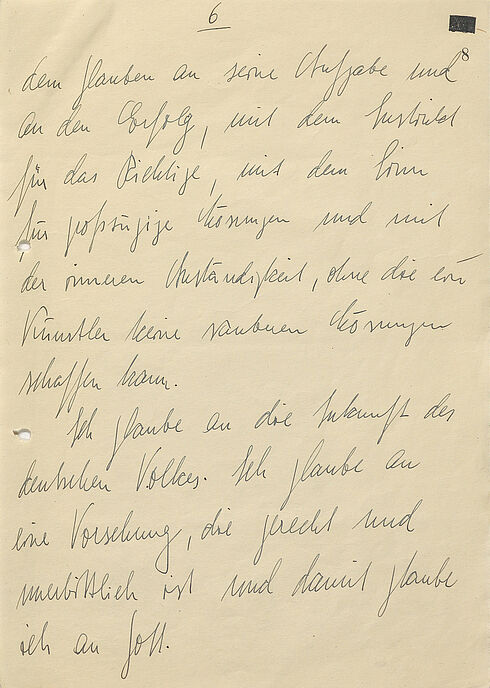 6
8
dem Glauben an seine Aufgabe und
an den Erfolg, mit dem Instinkt
für das Richtige, mit dem Sinn
für großzügige Lösungen und mit
der inneren Anständigkeit, ohne die ein
Künstler keine sauberen Lösungen
schaffen kann.
Ich glaube an die Zukunft des
deutschen Volkes. Ich glaube an
eine Vorsehung, die gerecht und
unerbittlich ist und damit glaube
ich an Gott.